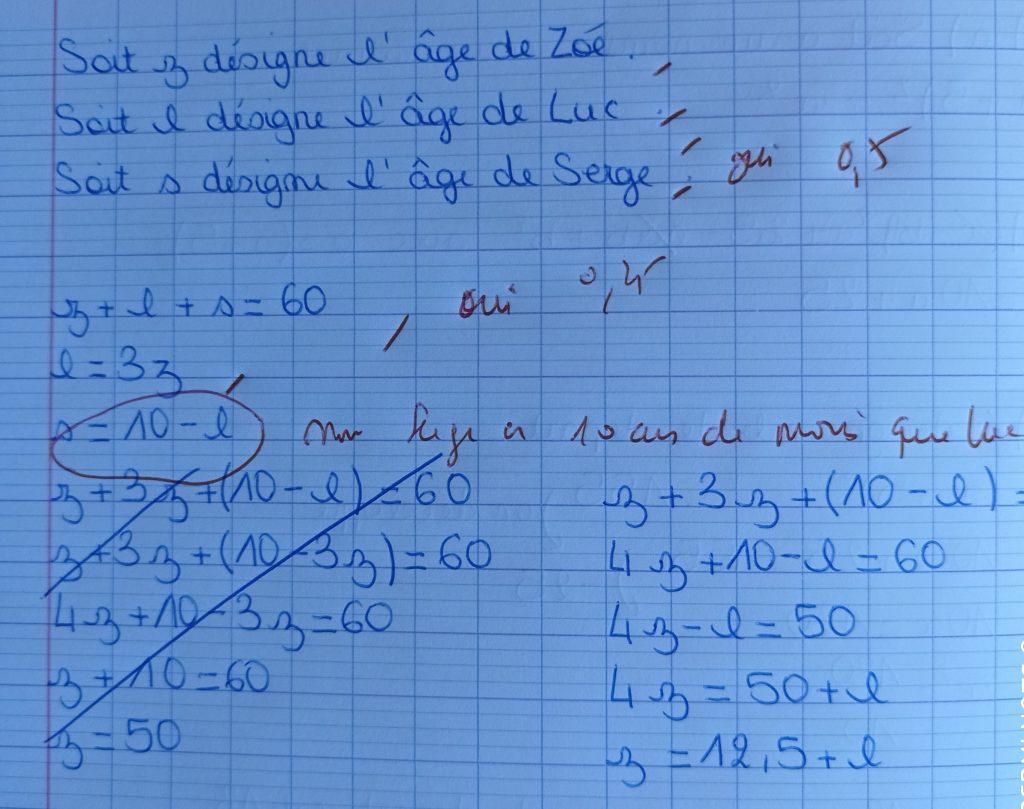 Soit z désigne l'âge de Zoé.
Soit l désigne l'âge de Luc.
Soit s désigne l'âge de Serge. oui 0,5
z + l + s = 60 oui
l = 3z
s = 10 - l non Serge a 10 ans de mois que Luc
z + 3z + (10 - l) = 60
z + 3z + (10 - 3z) = 60
4z + 10 - 3z = 60
z + 10 = 60
z = 50
z + 3z + (10 - l) =
4z + 10 - l = 60
4z - l = 50
4z = 50 + l
z = 12,5 + l